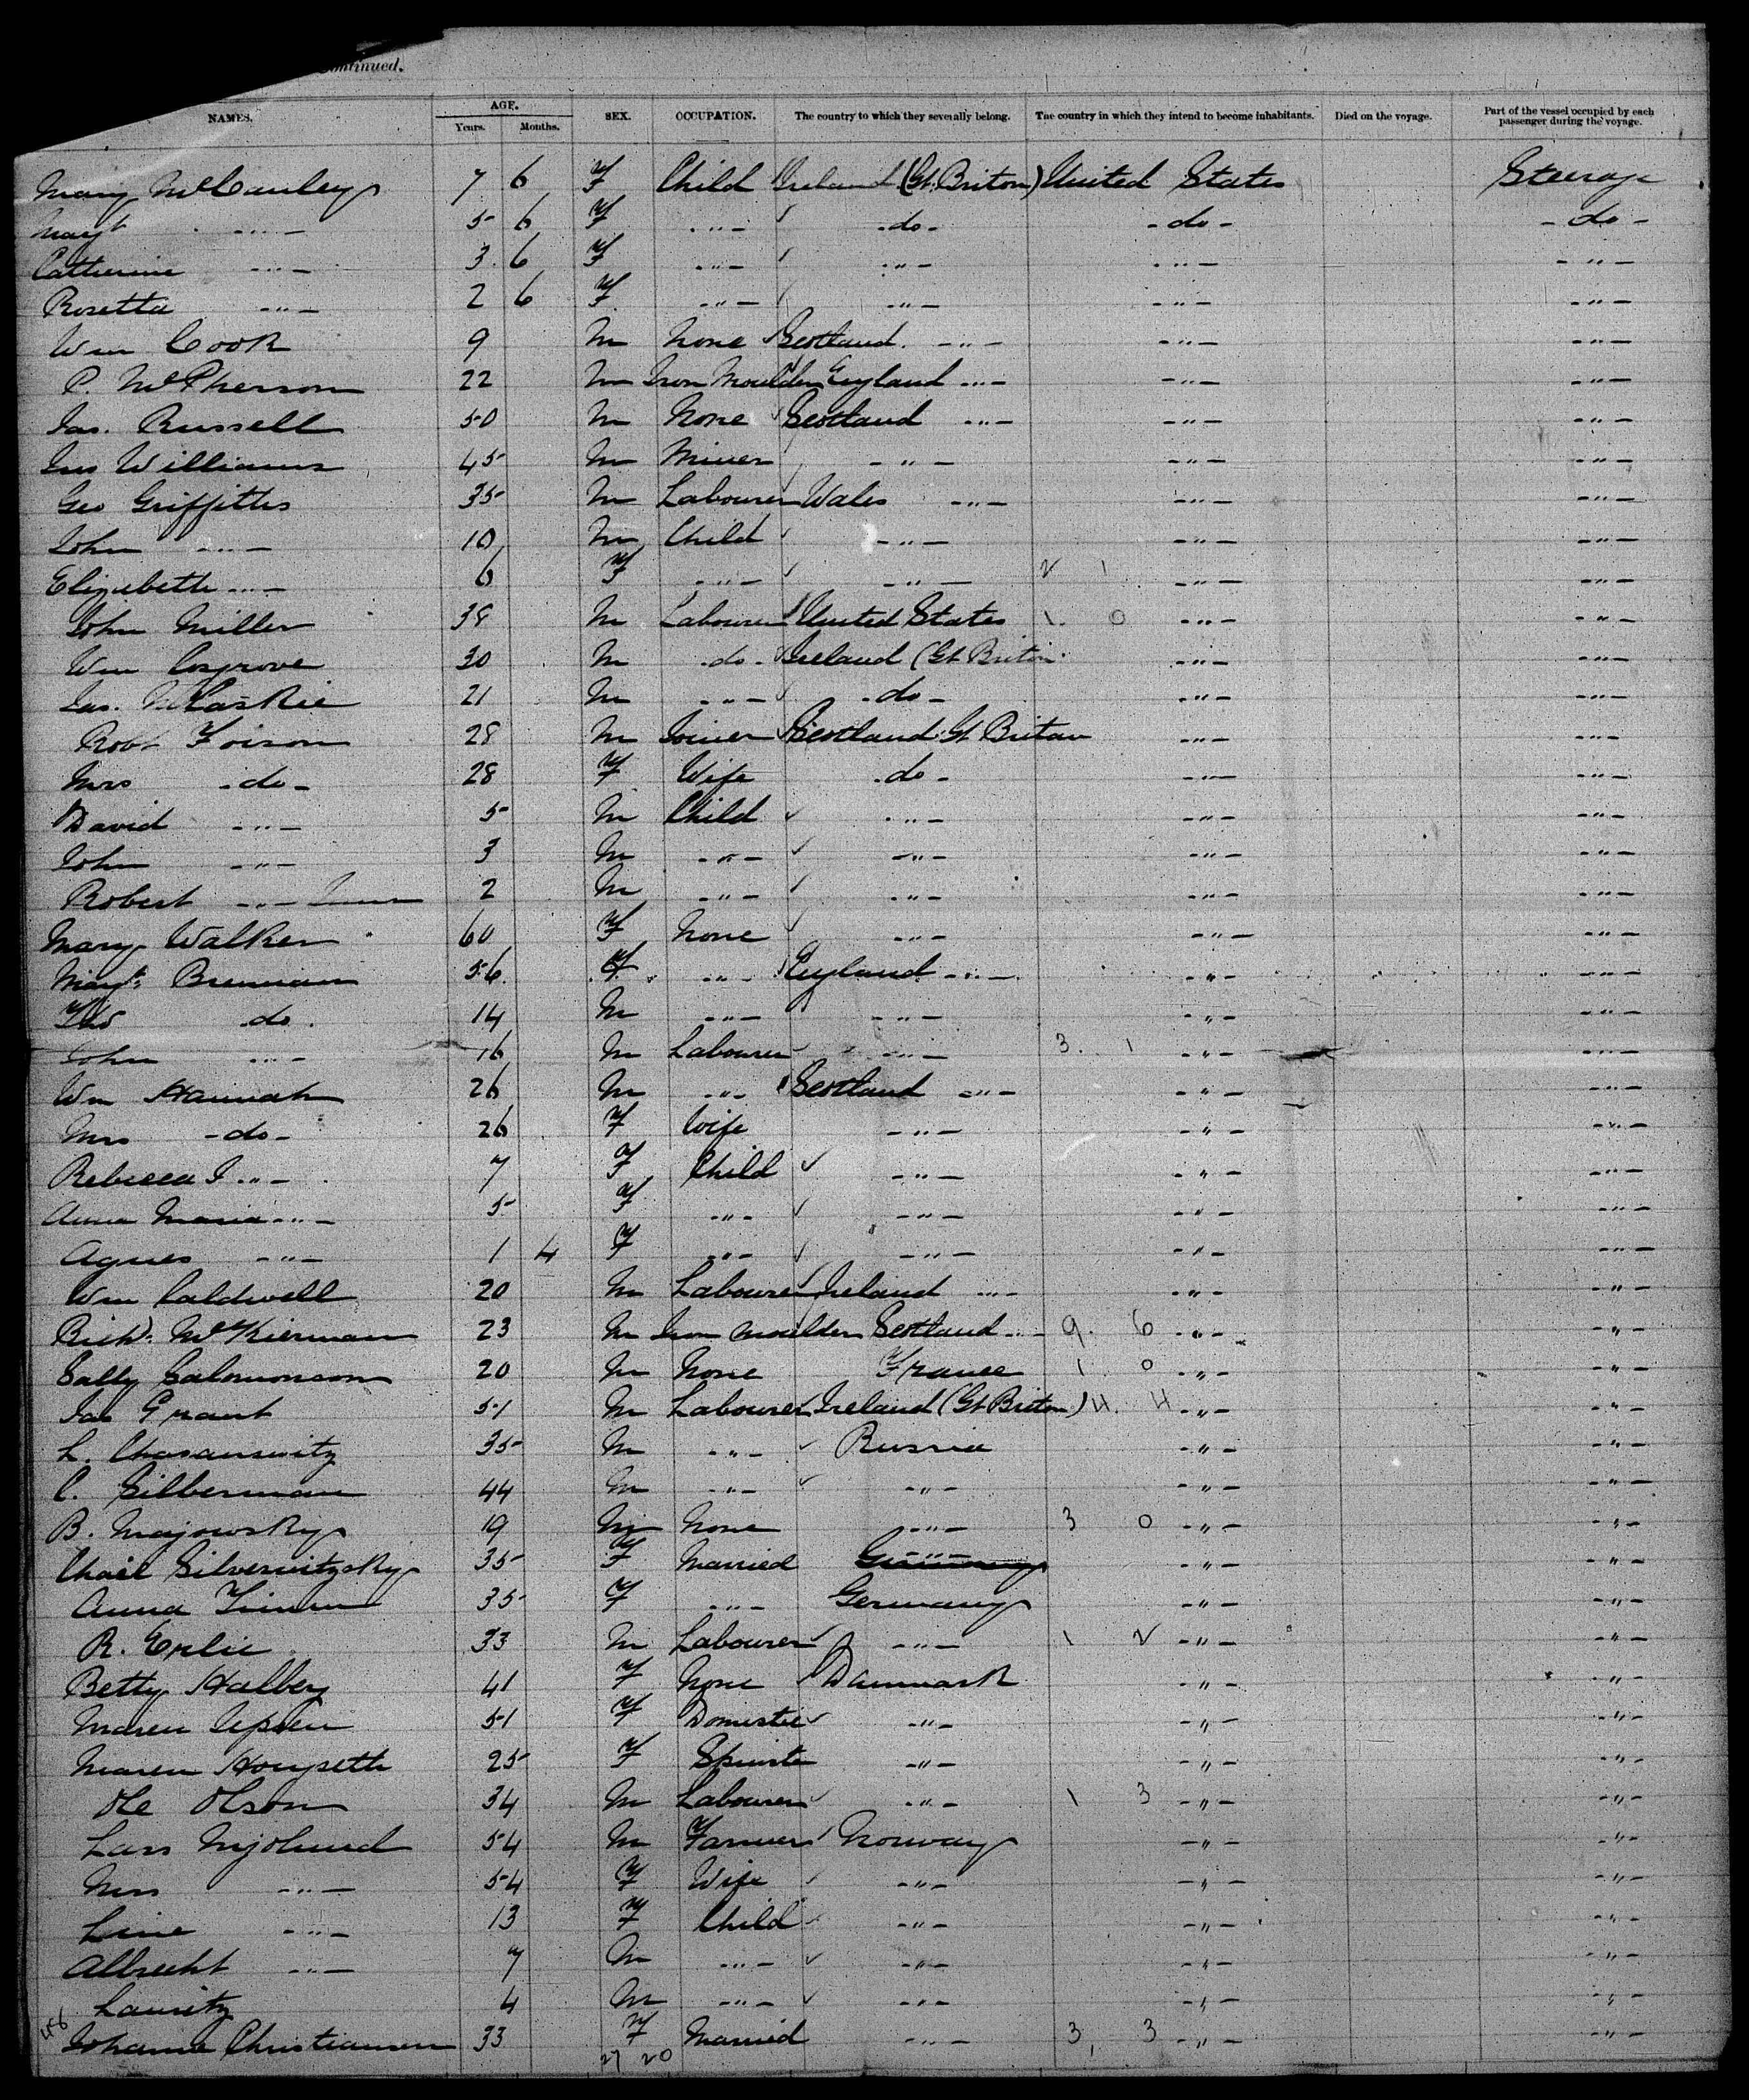 Continued.
NAMES. AGE. Years. Months. SEX. OCCUPATION. The country to which they severally belong. The country in which they intend to become inhabitants. Died on the voyage. Part of the vessel occupied by each passenger during the voyage.
Mary McCauley 7 6 F Child Ireland (Gt. Briton) United States Steerage
Margt -"- 5 6 F -"- -do- -do- -do-
Catherine -"- 3 6 F -"- -"- -"- -"-
Rosetta -"- 2 6 F -"- -"- -"- -"-
Wm Cook 9 M None Scotland -"- -"- -"-
P. McPherson 22 M Iron Moulder England -"- -"- -"-
Jas. Russell 50 M None Scotland -"- -"- -"-
Jno Williams 45 M Miner -"- -"- -"-
Geo Griffiths 35 M Labourer Wales -"- -"- -"-
John -"- 10 M Child -"- -"- -"-
Elizabeth -"- 6 F -"- -"- 2 1 -"- -"-
John Miller 38 M Labourer United States 1. 0 -"- -"-
Wm Cosgrove 30 M -do- Ireland (Gt Briton -"- -"-
Jas. McCaskie 21 M -"- -do- -"- -"-
Robt Foison 28 M Joiner Scotland Gt Britan -"- -"-
Mrs -do- 28 F Wife -do- -"- -"-
David -"- 5 M Child -"- -"- -"-
John -"- 3 M -"- -"- -"- -"-
Robert -"- 2 M -"- -"- -"- -"-
Mary Walker 60 F None -"- -"- -"-
Margt. Brennan 56 F -"- England -"- -"- -"-
Tho do 14 M -"- -"- -"- -"-
John -"- 16 M Labourer -"- 3. 1 -"- -"-
Wm Hannah 26 M -"- Scotland -"- -"- -"-
Mrs -do- 26 F Wife -"- -"- -"-
Rebecca J -"- 7 F Child -"- -"- -"-
Anna Maria -"- 5 F -"- -"- -"- -"-
Agnes -"- 1 4 F -"- -"- -"- -"-
Wm Caldwell 20 M Labourer Ireland -"- -"- -"-
Richd. McKiernan 23 M Iron Moulder Scotland -"- 9. 6 -"- -"-
Sally Salomonson 20 M None France 1 0 -"- -"-
Jas Grant 51 M Labourer Ireland (Gt Briton) 4. 4 -"- -"-
L. Chasanswitz 35 M -"- Russia -"- -"-
C. Silberman 44 M -"- -"- -"- -"-
B. Majowsky 19 M None -"- 3 0 -"- -"-
Chaie Silverwitzsky 35 F Married Germany -"- -"- -"-
Anna 35 F -"- Germany -"- -"-
R. 33 M Labourer -"- 1 2 -"- -"-
Betty Halberg 41 F None Danmark -"- -"-
Maren 51 F Domestic -"- -"- -"-
Maren 25 F -"- -"- -"-
Ole Olson 34 M Labourer -"- 1 3 -"- -"-
Lars Mjolund 54 M Farmer Norway -"- -"-
Mrs -"- 54 F Wife -"- -"- -"-
Line -"- 13 F Child -"- -"- -"-
Albrecht -"- 7 M -"- -"- -"- -"-
Lauritz 4 M -"- -"- -"- -"-
Johanna Christiansen 33 F Married -"- 3, 3 -"- -"-
27 20